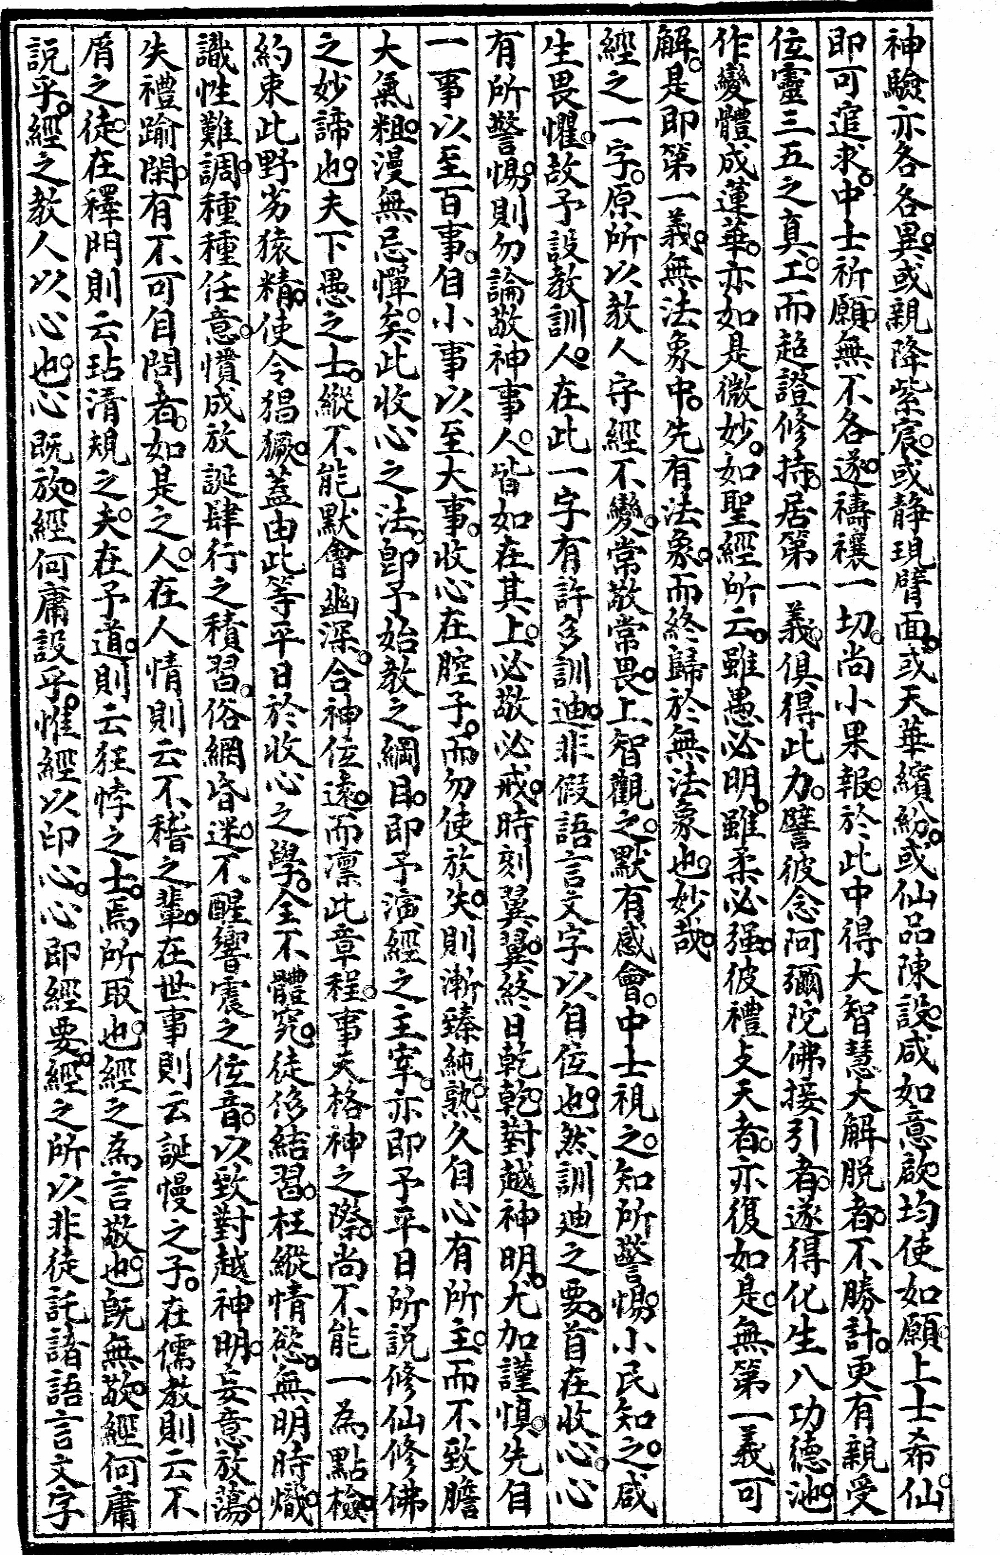 神驗亦各各異或親降紫宸或静現臂面或天華繽紛或仙品陳設咸如意啟均使如願上士希仙
即可追求中士祈願無不各遂禱禳一切尚小果報於此中得大智慧大解脱者不勝計更有親受
位靈三五之真工而超證修持居第一義俱得此力譬彼念阿彌陀佛接引者遂得化生八功德池
作變體成蓮華亦如是微妙如聖經所云雖愚必明雖柔必强彼禮文天者亦復如是無第一義可
解是即第一義無法象中先有法象而終歸於無法象也妙哉
經之一字原所以教人守經不變常敬常畏上智觀之默有感會中士視之知所警惕小民知之咸
生畏懼故予設教訓人在此一字有許多訓迪非假語言文字以自位也然訓迪之要首在收心心
有所警惕則勿論敬神事人皆如在其上必敬必戒時刻翼翼終日乾乾對越神明尤加謹慎先自
一事以至百事自小事以至大事收心在腔子而勿使放失則漸臻純熟久自心有所主而不致膽
大氣粗漫無忌憚矣此收心之法即予始教之綱目即予演經之主宰亦即予平日所説修仙修佛
之妙諦也夫下愚之士縱不能默會幽深合神位遠而凛此章程事天格神之際尚不能一為點檢
約束此野劣猿精使令猖獗蓋由此等平日於收心之學全不體究徒俗結習枉縱情慾無明時熾
識性難調種種任意慣成放誕肆行之積習俗網昏迷不醒響震之位音以致對越神明妄意放蕩
失禮踰閑有不可自問者如是之人在人情則云不稽之輩在世事則云誕慢之子在儒教則云不
屑之徒在釋門則云玷清規之夫在予道則云狂悖之士焉所取也經之為言敬也既無敬經何庸
説乎經之教人以心也心既放經何庸設乎惟經以印心心即經要經之所以非徒託諸語言文字